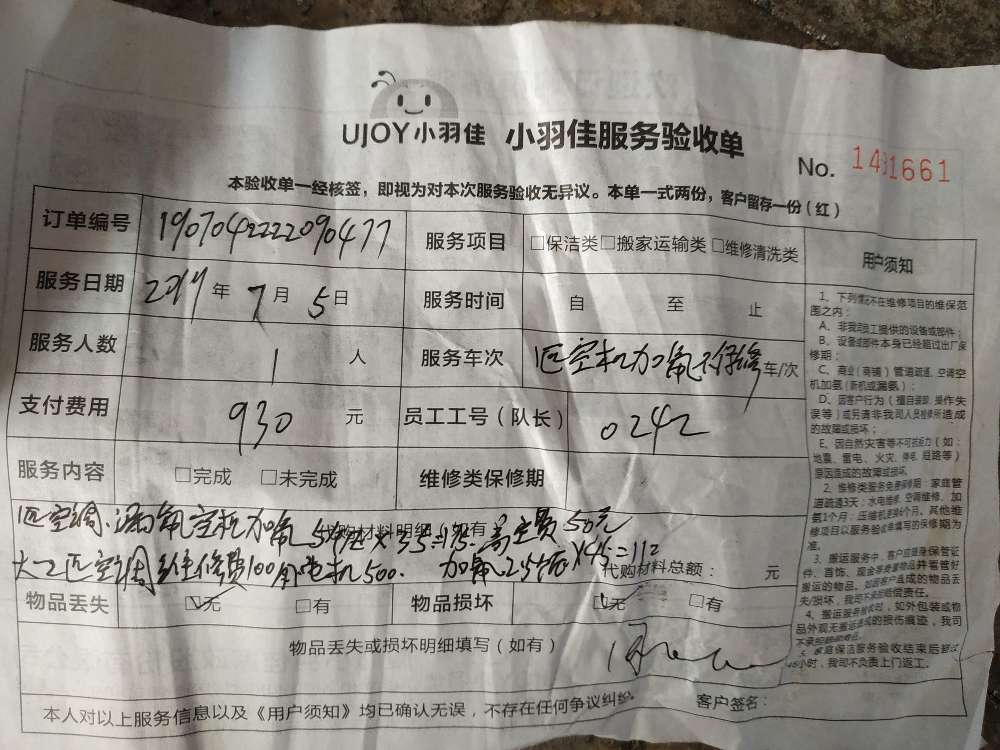 UJOY小羽佳 小羽佳服务验收单
No. 1431661
本验收单一经核签，即视为对本次服务验收无异议。本单一式两份，客户留存一份（红）
订单编号 190704222209047 服务项目 □保洁类□搬家运输类□维修清洗类
服务日期 2019年7月5日 服务时间 自 至 止
服务人数 1人 服务车次 匹空机加氟不保修 车/次
支付费用 930 元 员工工号（队长） 0242
服务内容 □完成 □未完成 维修类保修期
匹空调 空机加氟 5 × 35=175. 高空费50元
代购材料明细 有
大2匹空调 维修费100 外电机500. 加氟2.5 ×45=112
代购材料总额： 元
物品丢失 ☑无 □有 物品损坏 ☑无 □有
物品丢失或损坏明细填写（如有）
本人对以上服务信息以及《用户须知》均已确认无误，不存在任何争议纠纷。 客户签名：
用户须知
1、下列情况不在维修项目的维保范
围之内：
A、非我司员工提供的设备或部件；
B、设备或部件本身已经超过出厂保
修期；
C、商业（商铺）管道疏通、空调空
机加氨（新机或漏氨）；
D、因客户行为（擅自装卸、操作失
误等）或另请非我司人员检修所造成
的故障或损坏；
E、因自然灾害等不可抗力（如：
地震、雷电、火灾、停电、短路等）
原因造成的故障或损坏。
2、维修类服务免费保修期：家庭管
道疏通3天；水电维修、空调维修、加
氨1个月；压缩机更换6个月。其他维
修项目以服务验收单填写的保修期为
准。
3、搬运服务中，客户应随身保管证
件、首饰、现金等贵重物品并看管好
搬运的物品，如因客户造成的物品丢
失/损坏，我司不承担赔偿责任。
4、搬运服务验收时，如外包装或物
品外观无搬运造成的损伤痕迹，我司
不承担赔偿责任。
5、家庭保洁服务验收结束后超过
48小时，我司不负责上门返工。